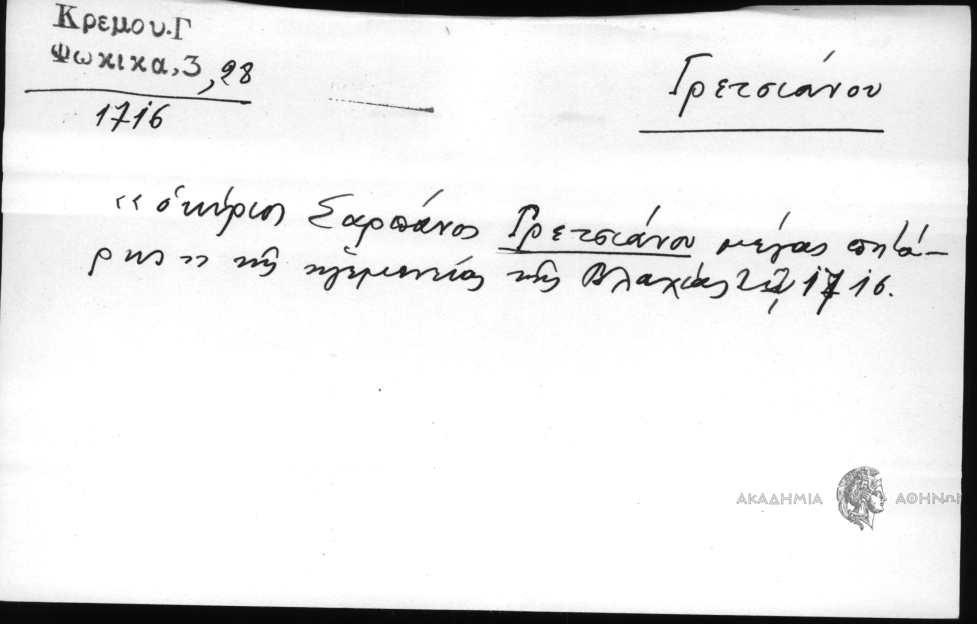 Κρεμου.Γ
Φωκικα,3,28
1716
Γρετσιάνου
«ὁ κύριος Σαρπάνος Γρετσιάνου μέγας
της ἡγεμονείας της Βλαχίας 1716.
ΑΚΑΔΗΜΙΑ ΑΘΗΝΩΝ